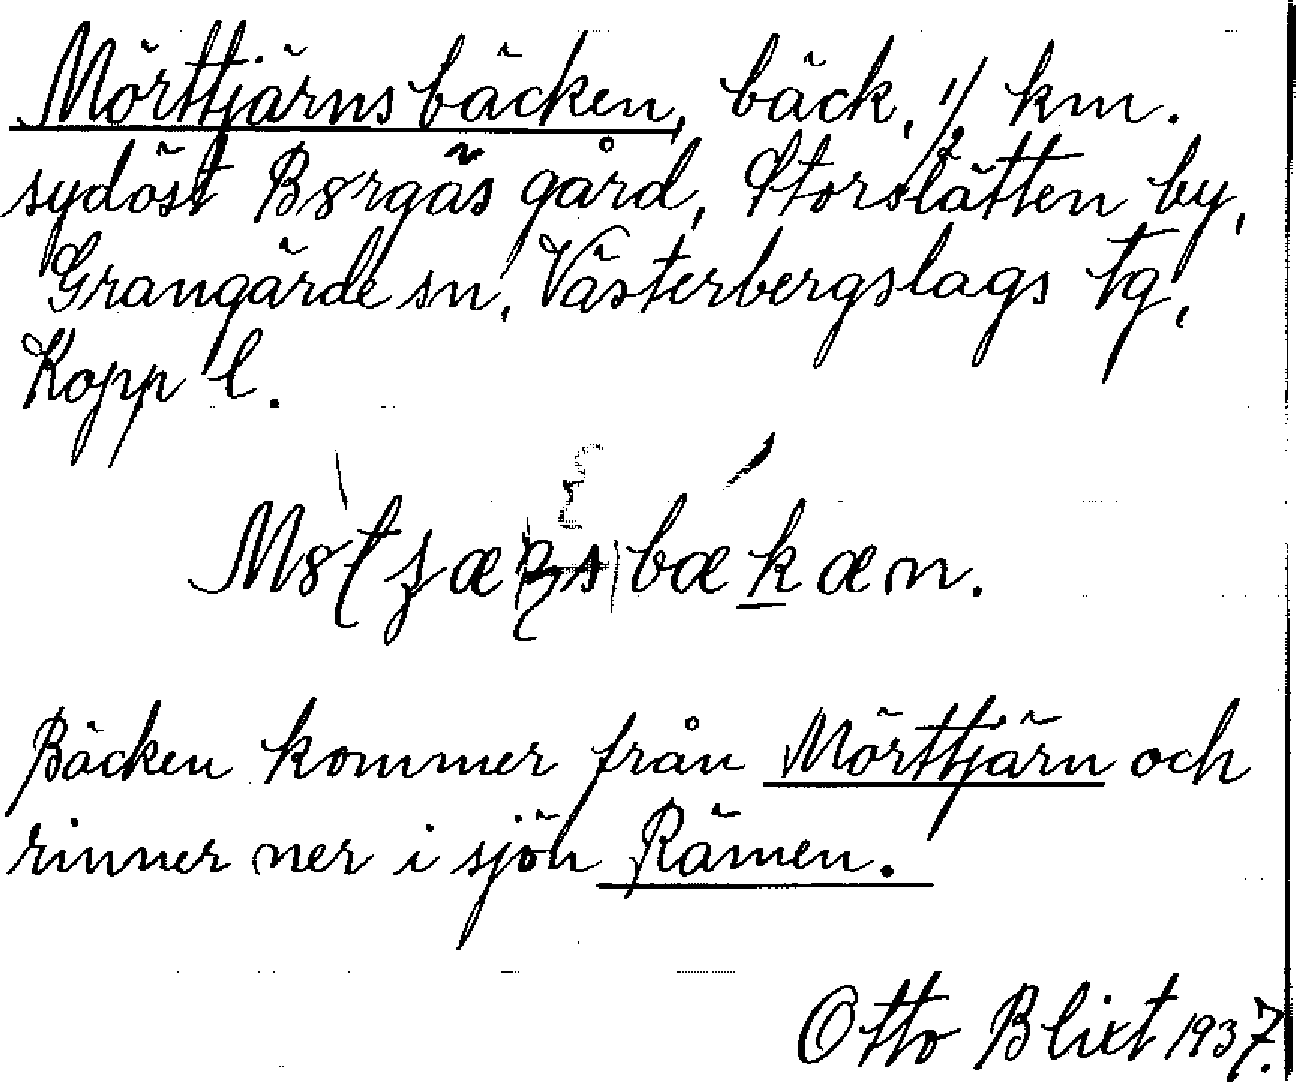 Mörttjärnsbäcken, bäck, 1/2 km.
sydöst Bergäs gård, Storslätten by,
Grangärde sn, Västerbergslags tg,
Kopp l.
bækæn.
Bäcken kommer från Mörttjärn och
rinner ner i sjön Rämen.
Otto Blixt 1937.